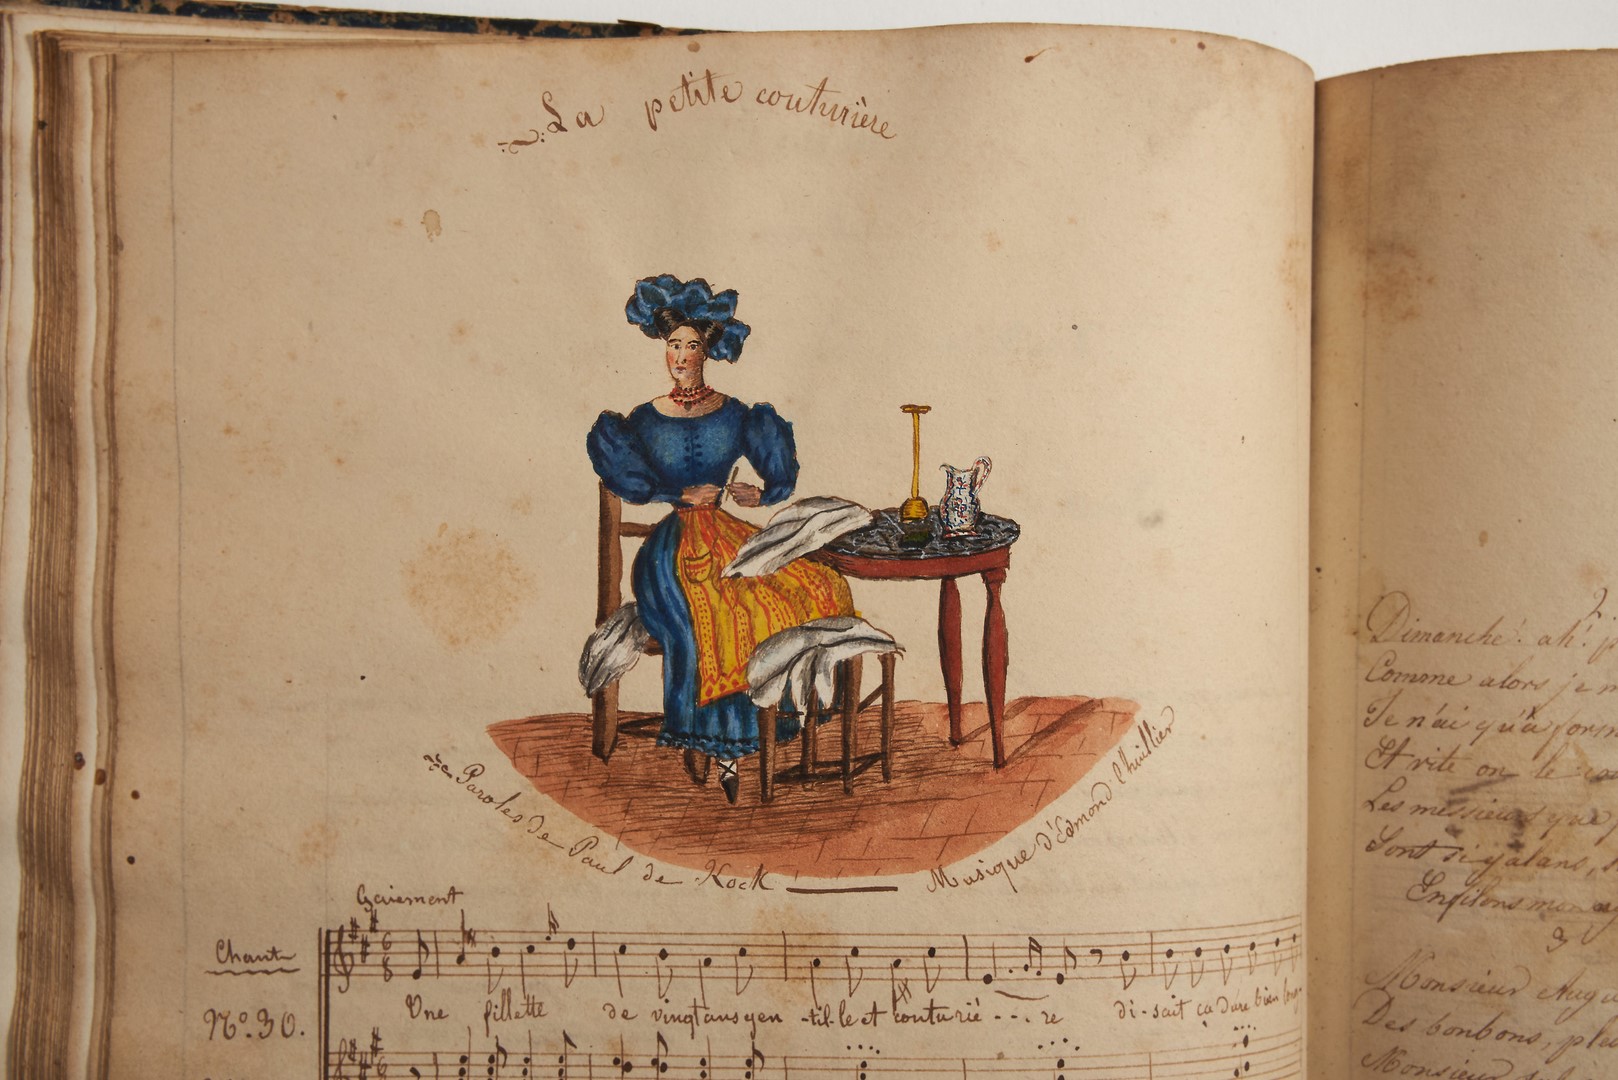 La petite couturière
Paroles de Paul de Kock — Musique d'Edmond l'huillier
Gaiement
Chant
N.o 30.
Une fillette de vingt ans gen -til-le et couturiè - - - re di - sait ça dure bien
Dimanche! ah! j
Comme alors je n
Je n'ai qu'à form
Et vite on le
Les messieurs que
Sont si galans,
Enfilons mon
3
Monsieur Aug
Des bonbons,
Monsieur